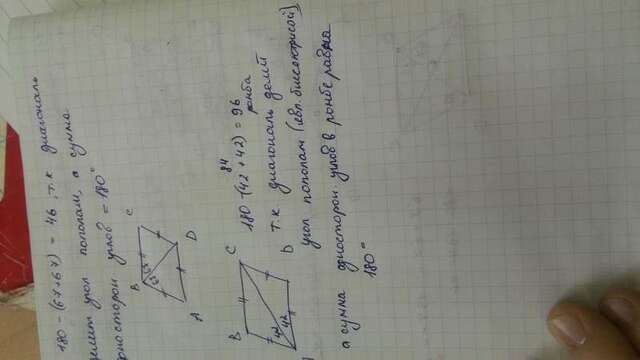 180 - (67+67) = 46, т.к диагональ
делит угол пополам, а сумма
одностор углов = 180°
B
C
67
67
A
D
84
180 - (42+42) = 96
т.к. диагональ ромба делит
угол пополам (явл. биссектрисой)
B
C
42
42
D
а сумма одностороn углов в ромбе равна
180°